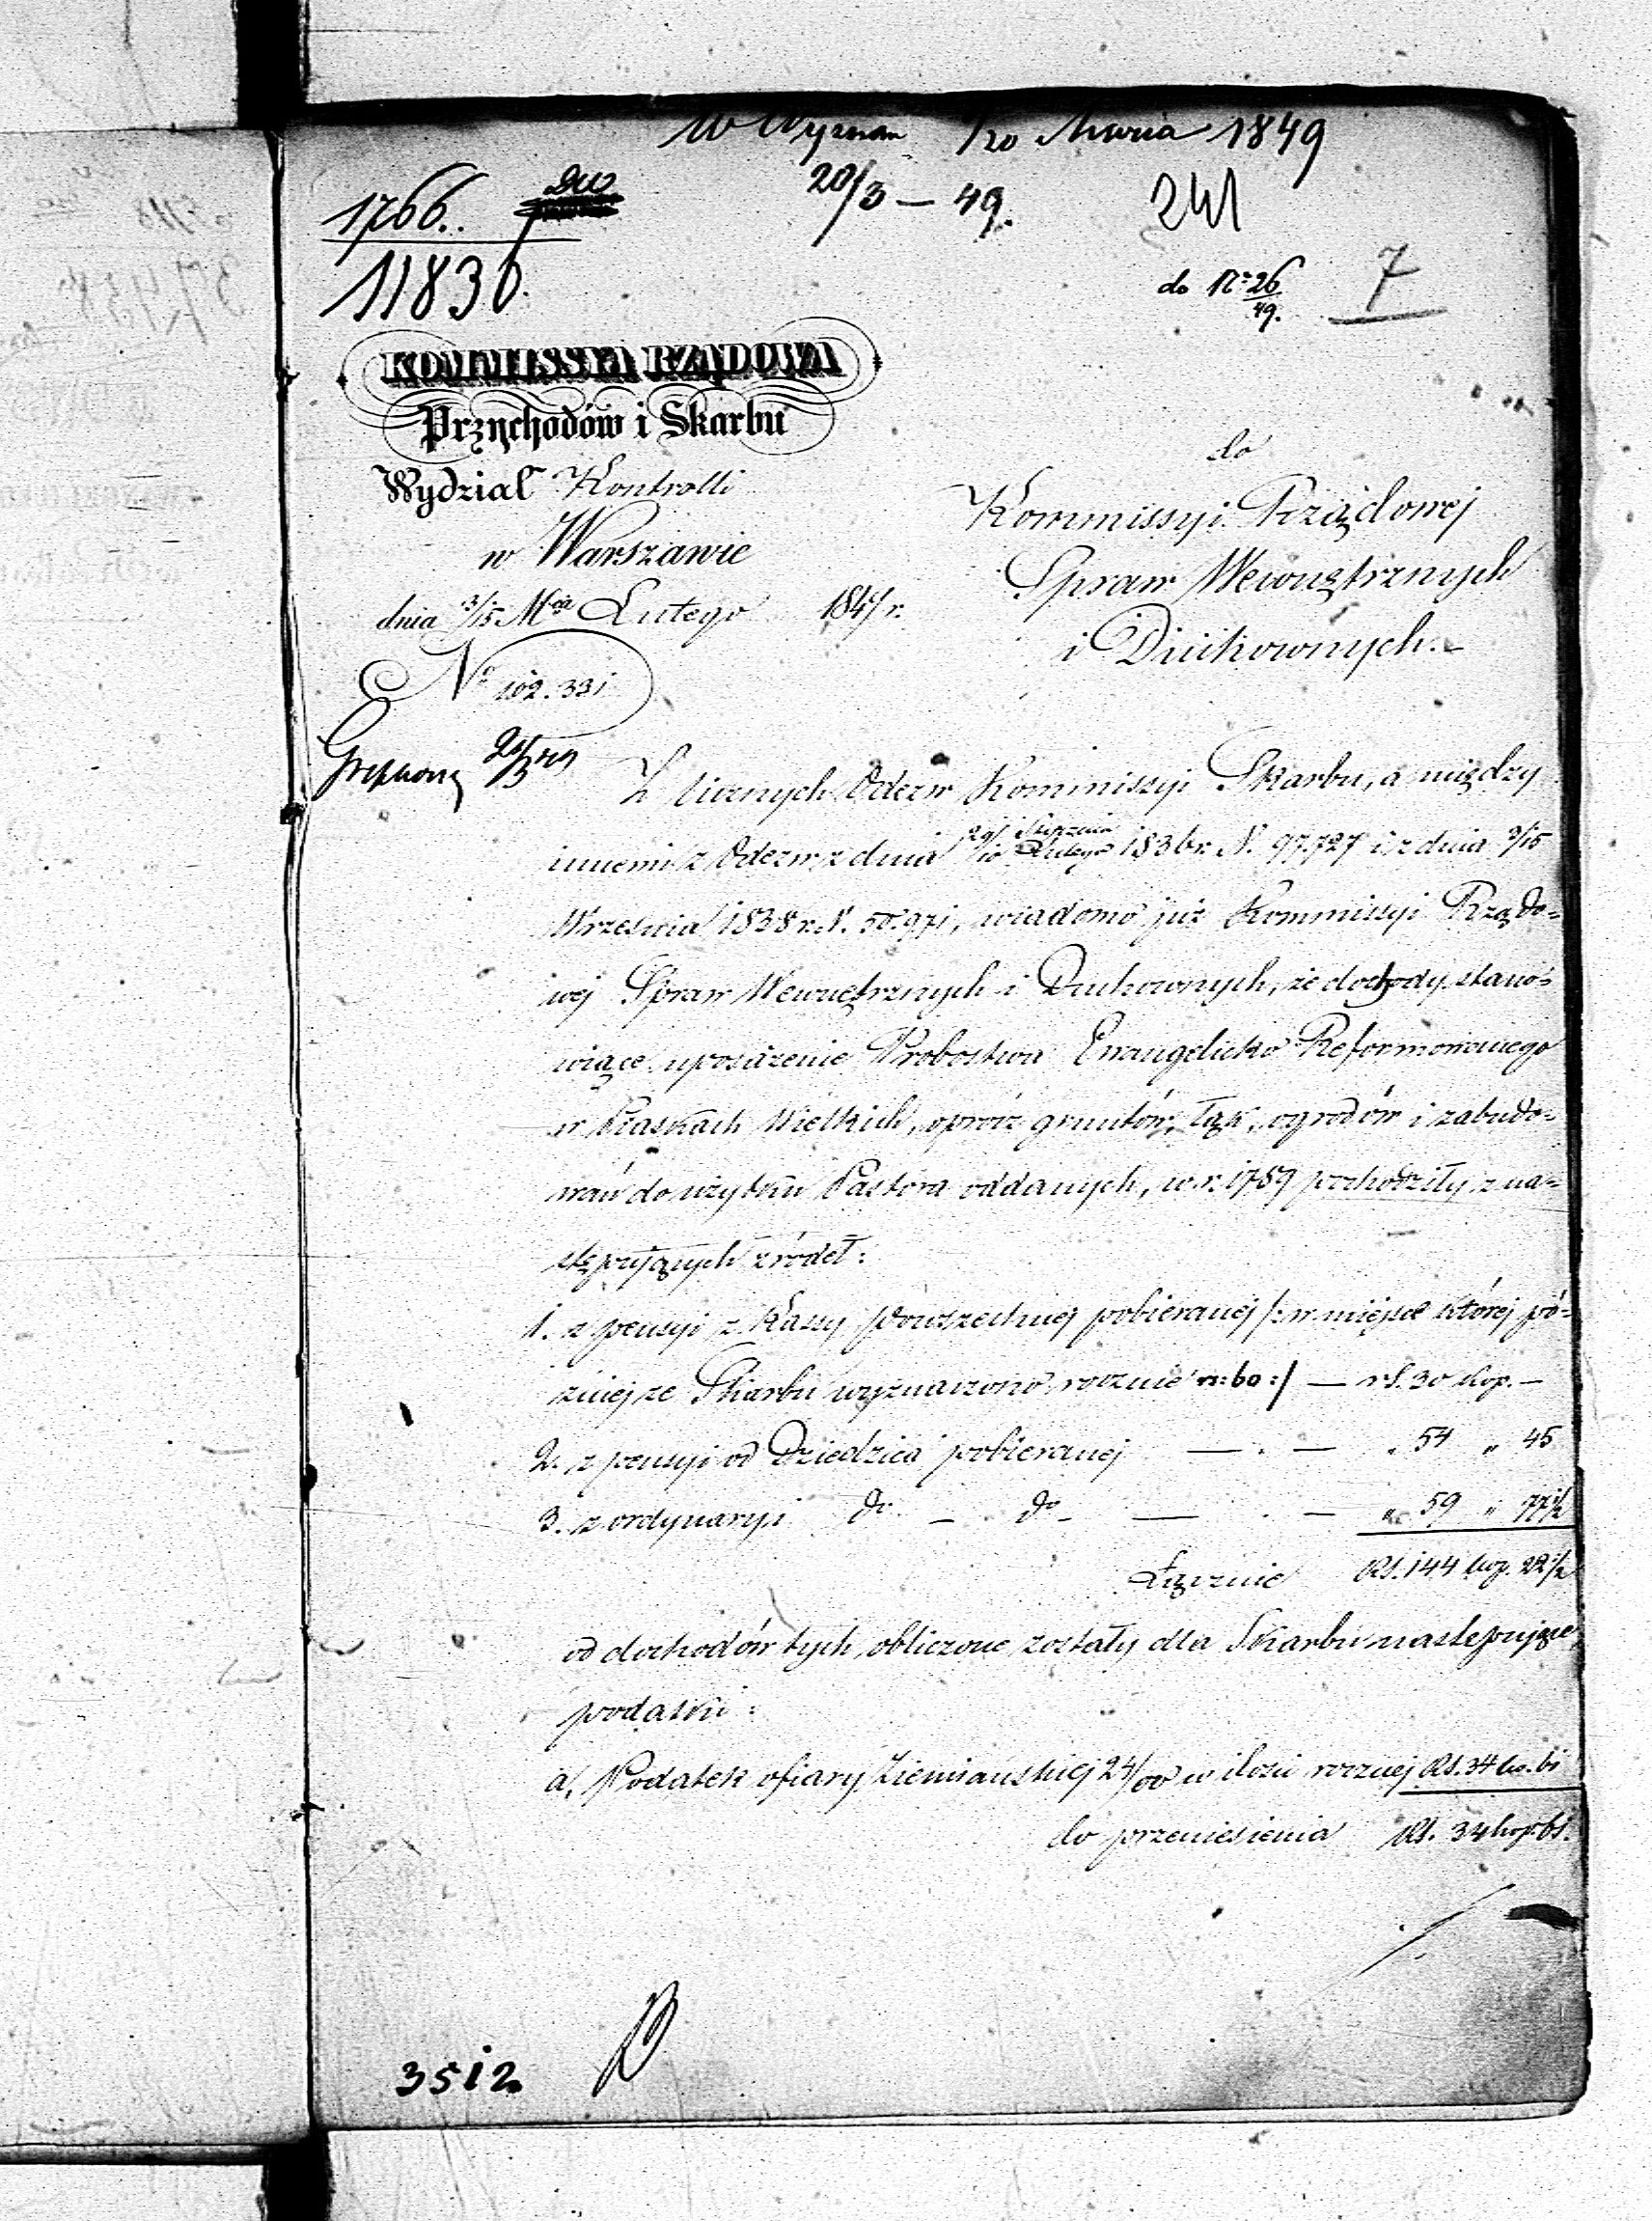 W Wyznan 1/20 Marca 1849
1766.. DW 20/3 – 49. 241
11836. do No 26/49. 7
KOMMISSYA RZĄDOWA
Przychodów i Skarbu
Wydział Kontrolli
w Warszawie
dnia 3/15 Mca Lutego 184 r.
No 102.331
do
Kommissyi Rządowej
Spraw Wewnętrznych
i Duchownych.–
Z licznych Odezw Kommissyi Skarbu, a między
innemi z Odezw z dnia 29/10 Stycznia/Lutego 1836 r. N. 97.727 i z dnia 3/15
Września 1838 r. N. 50.971, wiadomo już Kommissyi Rządo-
wej Spraw Wewnętrznych i Duchownych, że dochody stano-
wiące uposażenie Probostwa Ewangelicko Reformowanego
w Piaskach Wielkich, oprócz gruntów, łąk, ogrodów i zabudo-
wań do użytku Pastora oddanych, w r. 1789 pochodziły z na-
stępujących źródeł:
1. z pensyi z Kassy powszechnej pobieranej /: w miejsce której pó-
źniej ze Skarbu wyznaczono rocznie rs: 60 :/ — rs. 30 kop. –
2. z pensyi od Dziedzica pobieranej — . — „ 54 „ 45
3. z ordynaryi do – do – — . — „ 59 „ 77 1/2
Łącznie Rs. 144 kop. 22 1/2
od dochodów tych, obliczone zostały dla Skarbu następujące
podatki:
a, Podatek ofiary Ziemianskiej 24/00 w ilości rocznej Rs. 34 ko. 61
do przeniesienia Rs. 34 kop. 61.
3512